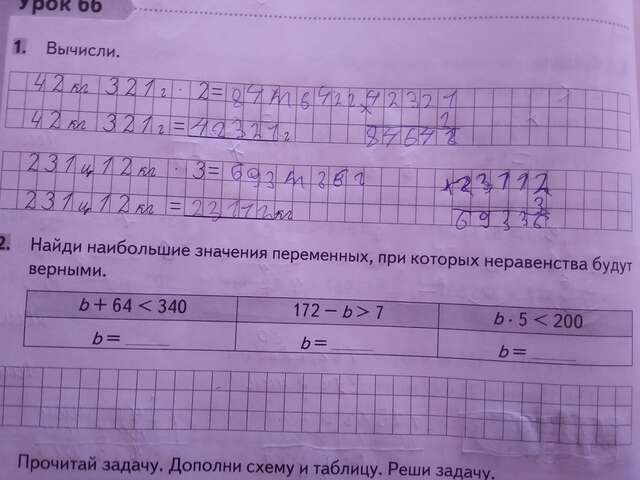 Урок 66
1. Вычисли.
42 кг 321 г · 2 = 84 м 642 г × 42321
2
42 кг 321 г = 42321 г 84642
231 ц 12 кг · 3 = 693 м 36 г × 23112
3
231 ц 12 кг = 23112 кг 69336
2. Найди наибольшие значения переменных, при которых неравенства будут
верными.
b + 64 < 340 172 – b > 7 b · 5 < 200
b = ____ b = ____ b = ____
Прочитай задачу. Дополни схему и таблицу. Реши задачу.